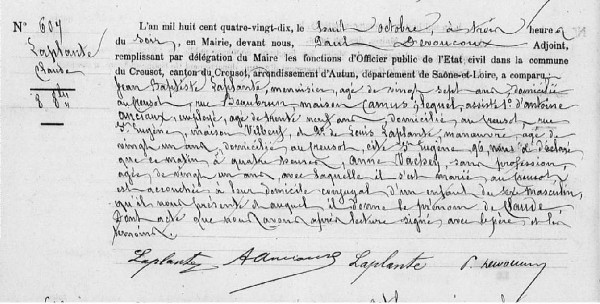 N° 607
Laplante
Claude
8 8bre
L'an mil huit cent quatre-vingt-dix, le huit octobre, à trois heures
du soir, en Mairie, devant nous, Paul Devoucoux Adjoint,
remplissant par délégation du Maire les fonctions d'Officier public de l'Etat civil dans la commune
du Creusot, canton du Creusot, arrondissement d'Autun, département de Saône-et-Loire, a comparu
Jean Baptiste Laplante, menuisier, agé de vingt sept ans, domicilié
au Creusot, rue Beaubrun, maison Camus; lequel, assisté 1° d'Antoine
Anciaux, employé, agé de trente neuf ans, domicilié au Creusot, rue
St Eugène, maison Vilbeuf, et 2° de Louis Laplante, manœuvre, agé de
vingt un ans, domicilié au Creusot, cité St Eugène 96, nous a déclaré
que ce matin à quatre heures, Anne Vachey, sans profession,
agée de vingt un ans, avec laquelle il s'est marié au Creusot,
est accouchée à leur domicile conjugal d'un enfant du sexe masculin,
qu'il nous présente et auquel il donne le prénom de Claude
Dont acte que nous avons après lecture signé, avec le père et les
témoins.
Laplante A Anciaux Laplante P. Devoucoux